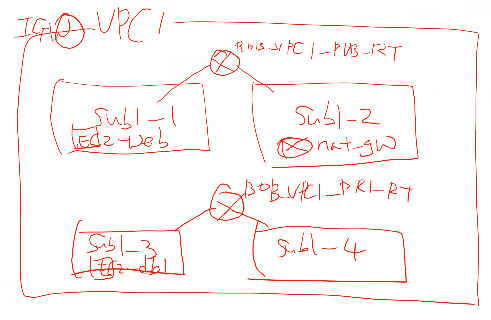 IGW VPC1
BOB_VPC1_PUB_RT
Sub1-1
EC2-Web
Sub1-2
nat-gw
BOB_VPC1_PRI_RT
Sub1-3
Sub1-4